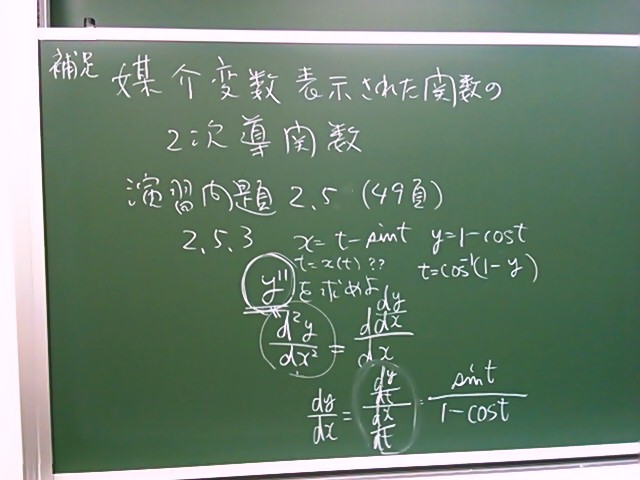 補足 媒介変数表示された関数の
2次導関数
演習問題 2.5 (49頁)
2.5.3 x = t - sint y = 1 - cost
t = x(t) ?? t = cos⁻¹(1 - y)
y'' を求めよ
d²y/dx² = d(dy/dx)/dx
dy/dx = (dy/dt)/(dx/dt) = sint/(1 - cost)